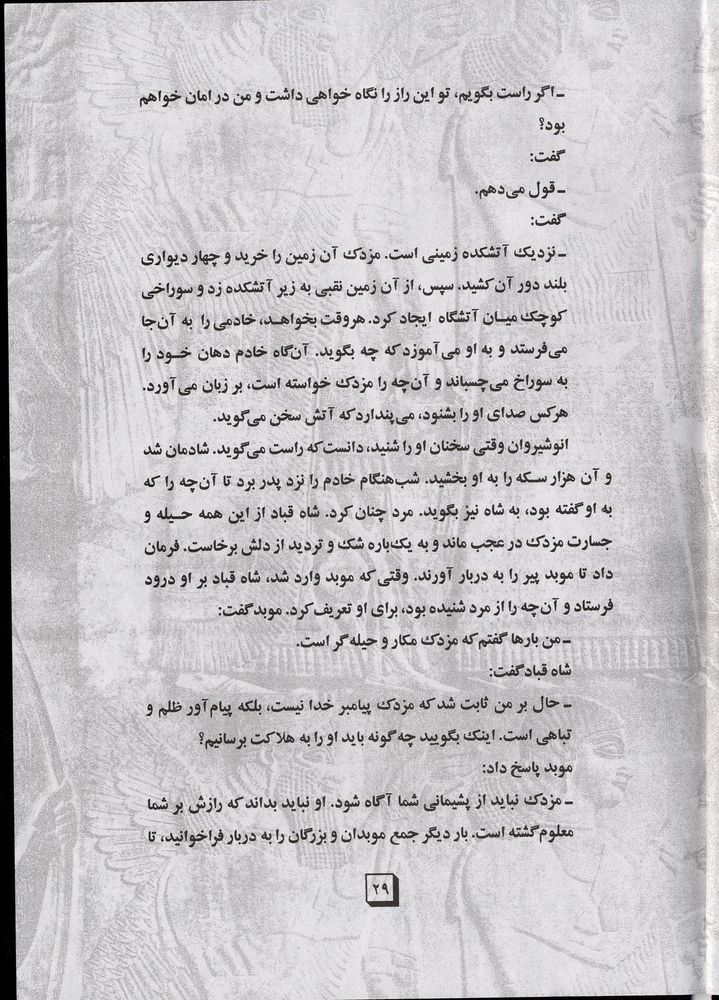 ـ اگر راست بگویم، تو این راز را نگاه خواهی داشت و من در امان خواهم
بود؟
گفت:
ـ قول می‌دهم.
گفت:
ـ نزدیک آتشکده زمینی است. مزدک آن زمین را خرید و چهار دیواری
بلند دور آن کشید. سپس، از آن زمین نقبی به زیر آتشکده زد و سوراخی
کوچک میـان آتشگاه ایجاد کرد. هروقت بخواهـد، خادمی را به آن‌جا
می‌فرستد و به او می‌آموزد که چه بگوید. آن‌گاه خادم دهان خـود را
به سوراخ می‌چسباند و آن‌چه را مزدک خواسته است، بر زبان می‌آورد.
هرکس صدای او را بشنود، می‌پندارد که آتش سخن می‌گوید.
انوشیروان وقتی سخنان او را شنید، دانست که راست می‌گوید. شادمان شد
و آن هزار سـکه را به او بخشید. شب‌هنگام خادم را نزد پدر برد تا آن‌چه را که
به او گفته بود، به شاه نیز بگوید. مرد چنان کرد. شاه قباد از این همه حـیله و
جسارت مزدک در عجب ماند و به یک‌باره شک و تردید از دلش برخاست. فرمان
داد تا موبد پیر را به دربار آورند. وقتی که موبد وارد شد، شاه قباد بر او درود
فرستاد و آن‌چه را از مرد شنیده بود، برای او تعریف کرد. موبد گفت:
ـ من بارها گفتم که مزدک مکار و حیله‌گر است.
شاه قباد گفت:
ـ حال بر من ثابت شد که مزدک پیامبر خدا نیست، بلکه پیام‌آور ظلم و
تباهی است. اینک بگویید چه‌گونه باید او را به هلاکت برسانیم؟
موبد پاسخ داد:
ـ مزدک نباید از پشیمانی شما آگاه شود. او نباید بداند که رازش بر شما
معلوم گشته است. بار دیگر جمع موبدان و بزرگان را به دربار فراخوانید، تا
۲۹